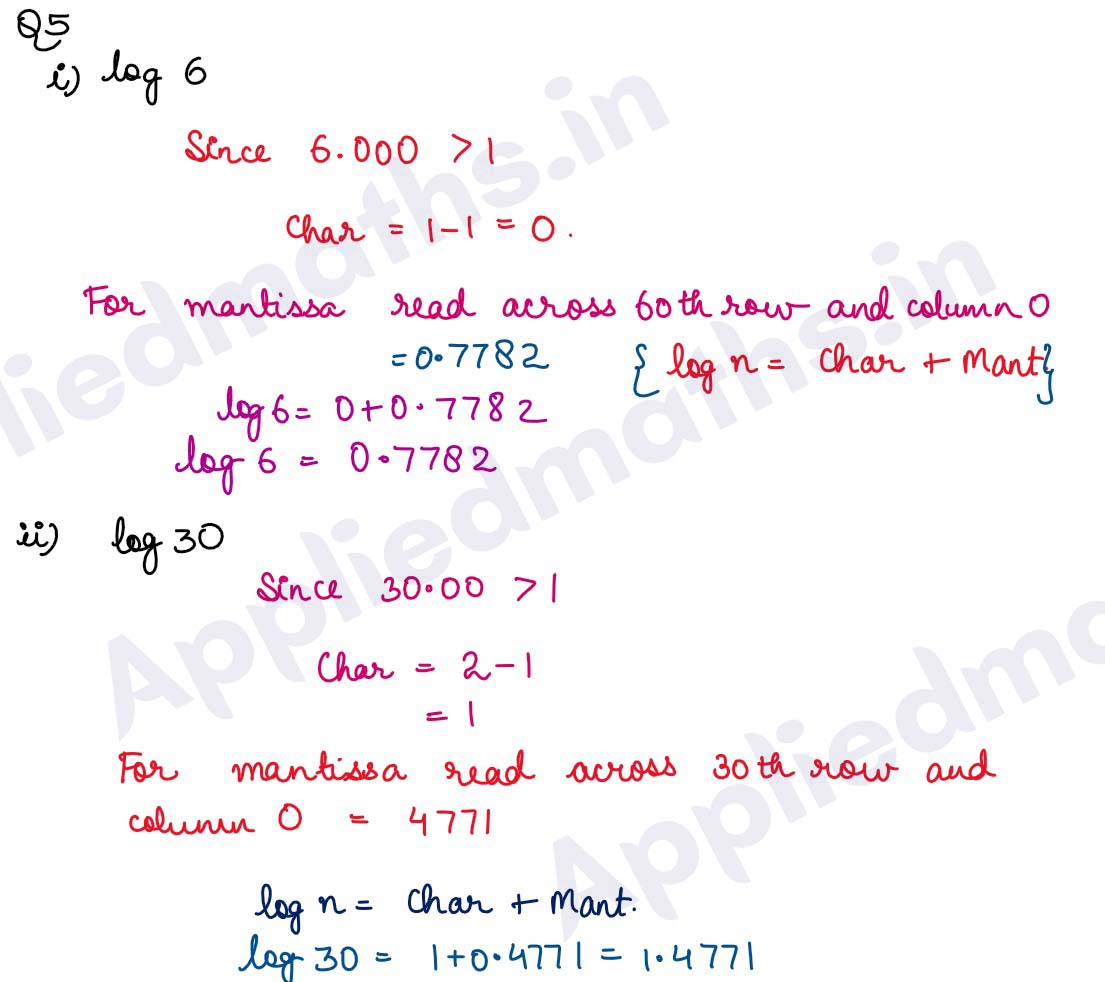 Q5
i) log 6
Since 6.000 > 1
Char = 1-1 = 0.
For mantissa read across 60th row and column 0
= 0.7782 { log n = Char + Mant}
log 6 = 0+0.7782
log 6 = 0.7782
ii) log 30
Since 30.00 > 1
Char = 2-1
= 1
For mantissa read across 30th row and
column 0 = 4771
log n = Char + Mant.
log 30 = 1+0.4771 = 1.4771
Appliedmaths.in
Appliedmaths.in
Appliedma